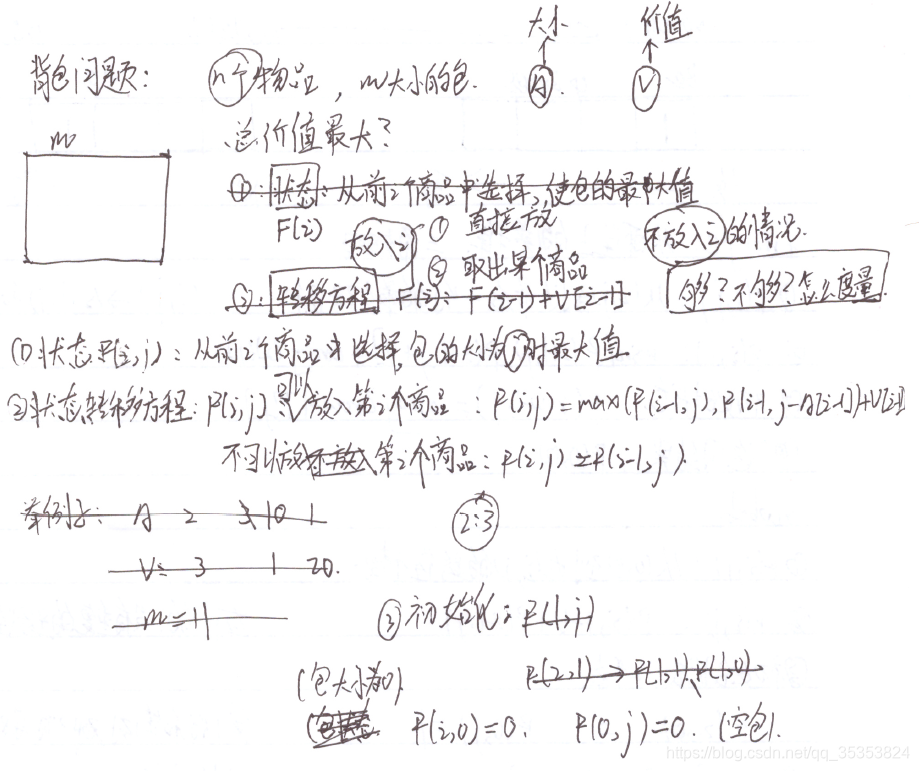 大小 价值
背包问题: n个物品, m大小的包. A. V
m 总价值最大?
①: 状态: 从前i个商品中选择, 使包的最大值
F(i) 放入i ① 直接放 不放入i的情况.
② 取出某个商品
②: 转移方程 F(i): F(i-1)+V[i-1] 够? 不够? 怎么度量
(1) 状态F(i,j): 从前i个商品中选择, 包的大小为j时最大值
②状态转移方程: F(i,j) 可以放入第i个商品: F(i,j)=max(F(i-1,j), F(i-1,j-A[i-1])+V[i-1]
不可以放入第i个商品: F(i,j)=F(i-1,j).
举例子: A 2 3 10 1 2:3
V: 3 1 20.
m=11 ③初始化: F(1,j)
(包大小为0). F(2,1) → F(1,1), F(1,0)
F(i,0)=0. F(0,j)=0. (空包).
https://blog.csdn.net/qq_35353824